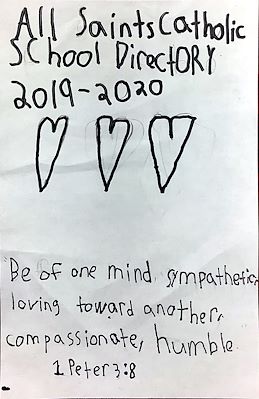 All Saints Catholic
School DirectORY
2019-2020
Be of one mind, sympathetic,
loving toward another,
compassionate, humble.
1 Peter 3:8